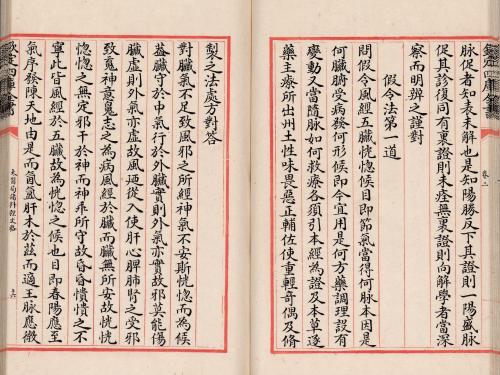 脉促者知表未解也是知陽勝反下其證則一陽盛脉
促其診復同有裏證則未痊無裏證則向解學者當深
察而明辨之謹對
假令法第一道
問假令風經五臟恍惚目即節氣當得何脉本因是
何臟腑受病發何形候即今宜用是何方藥調理設有
變動又當隨脉如何救療各須引本經為證及本草逐
藥主療所出州土性味畏惡正輔佐使重輕奇偶及脩
卷二
製之法處方對答
對臟氣不足致風邪之所經神氣不安斯恍惚而為候
葢臟守於中氣行於外臟實則外氣亦實故邪莫能傷
臟虚則外氣亦虚故風廼從入使肝心脾肺腎之受邪
致䰟神意魄志之為病風經於臟而臟無所安故恍恍
惚惚之無定邪干於神而神乖所守故昏昏憒憒之不
寧此皆風經於五臟故為恍惚之候也目即春陽應至
氣序發陳天地由是而氤氲肝木於茲而適王脉應微
太醫局諸科程文格